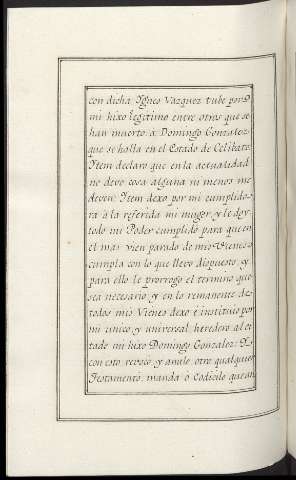 con dicha Ignes Vazquez tube por
mi hixo legitimo entre otros que se
han muerto a Domingo Gonzalez
que se halla en el Estado de Celibato:
Item declaro que en la actualidad
no devo cosa alguna ni menos me
deven: Item dexo por mi cumplido-
ra à la referida mi muger y le doy
todo mi Poder cumplido para que en
el mas vien parado de mis Vienes
cumpla con lo que llevo dispuesto, y
para ello le prorrogo el termino que
sea necesario, y en lo remanente de
todos mis Vienes dexo è instituio por
mi unico y universal heredero al ci
tado mi hixo Domingo Gonzalez: Y
con esto revoco y anulo otro qualquier
Testamento, manda ò Codicilo que an